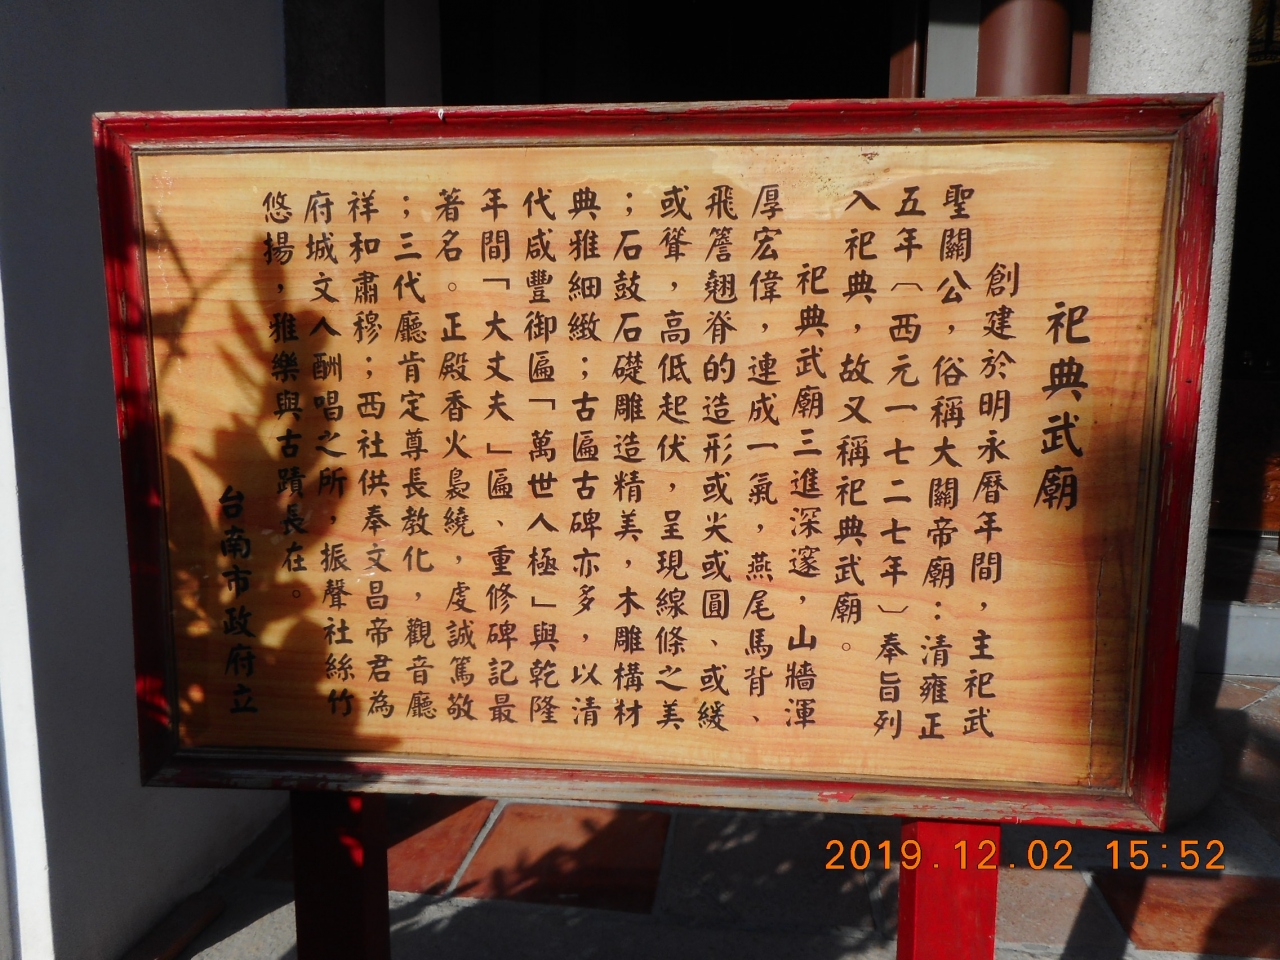 祀典武廟
創建於明永曆年間，主祀武
聖關公，俗稱大關帝廟：清雍正
五年〔西元一七二七年〕奉旨列
入祀典，故又稱祀典武廟。
祀典武廟三進深邃，山牆渾
厚宏偉，連成一氣，燕尾馬背、
飛簷翹脊的造形或尖或圓、或緩
或聳，高低起伏，呈現線條之美
；石鼓石礎雕造精美，木雕構材
典雅細緻；古匾古碑亦多，以清
代咸豐御匾「萬世人極」與乾隆
年間「大丈夫」匾、重修碑記最
著名。正殿香火裊繞，虔誠篤敬
；三代廳肯定尊長教化，觀音廳
祥和肅穆；西社供奉文昌帝君為
府城文人酬唱之所，振聲社絲竹
悠揚，雅樂與古蹟長在。
台南市政府立
2019.12.02 15:52